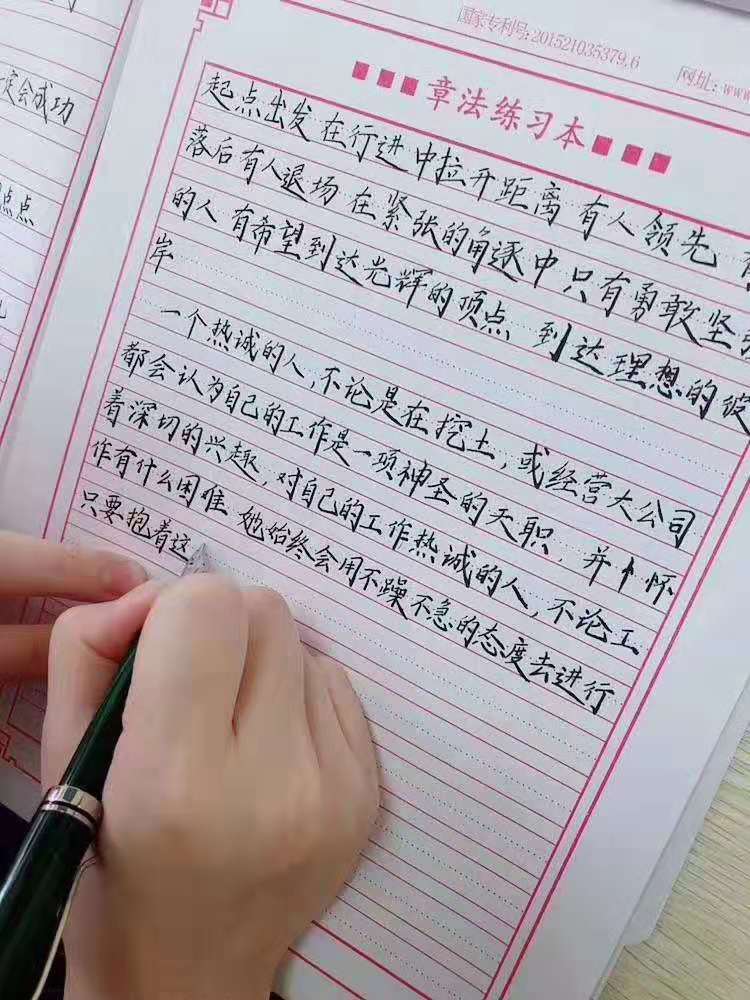 国家专利号:201521035379.6 网址:www
章法练习本
定会成功
点点
起点出发 在行进中拉开距离 有人领先
落后有人退场 在紧张的角逐中只有勇敢坚
的人 有希望到达光辉的顶点 到达理想的彼
岸
一个热诚的人,不论是在挖土,或经营大公司
都会认为自己的工作是一项神圣的天职,并怀
着深切的兴趣,对自己的工作热诚的人,不论工
作有什么困难 她始终会用不躁不急的态度去进行
只要抱着这